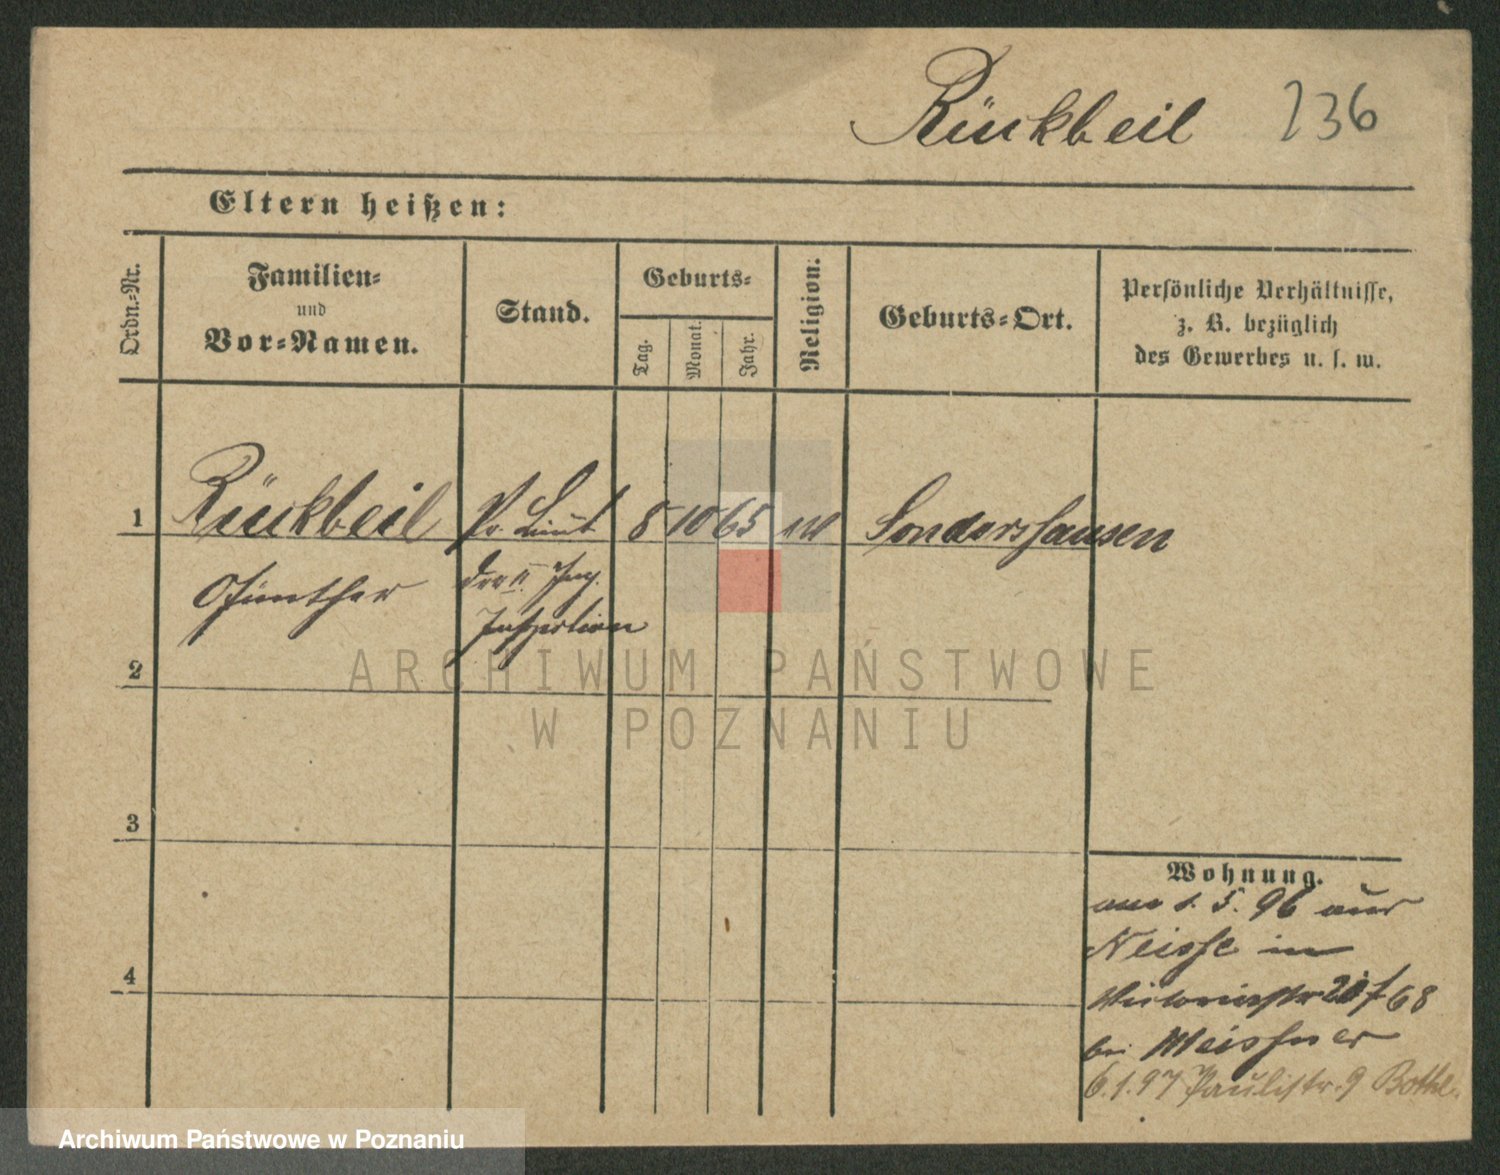 Rückbeil 236
Eltern heißen:
Ordn.-Nr.
Familien-
und
Vor-Namen.
Stand.
Geburts-
Tag.
Monat.
Jahr.
Religion:
Geburts-Ort.
Persönliche Verhältnisse,
z. B. bezüglich
des Gewerbes u. s. w.
1 Rückbeil Pr. Lieut 8 10 65 Sondershausen
Günther der II. Ing.
Inspection
2
ARCHIWUM PAŃSTWOWE
W POZNANIU
3
4
Wohnung.
am 1. 5. 96 aus
Neisse in
Victoriastr 20 f 68
bei Meissner
6.1.97 Paulistr. 9
Archiwum Państwowe w Poznaniu